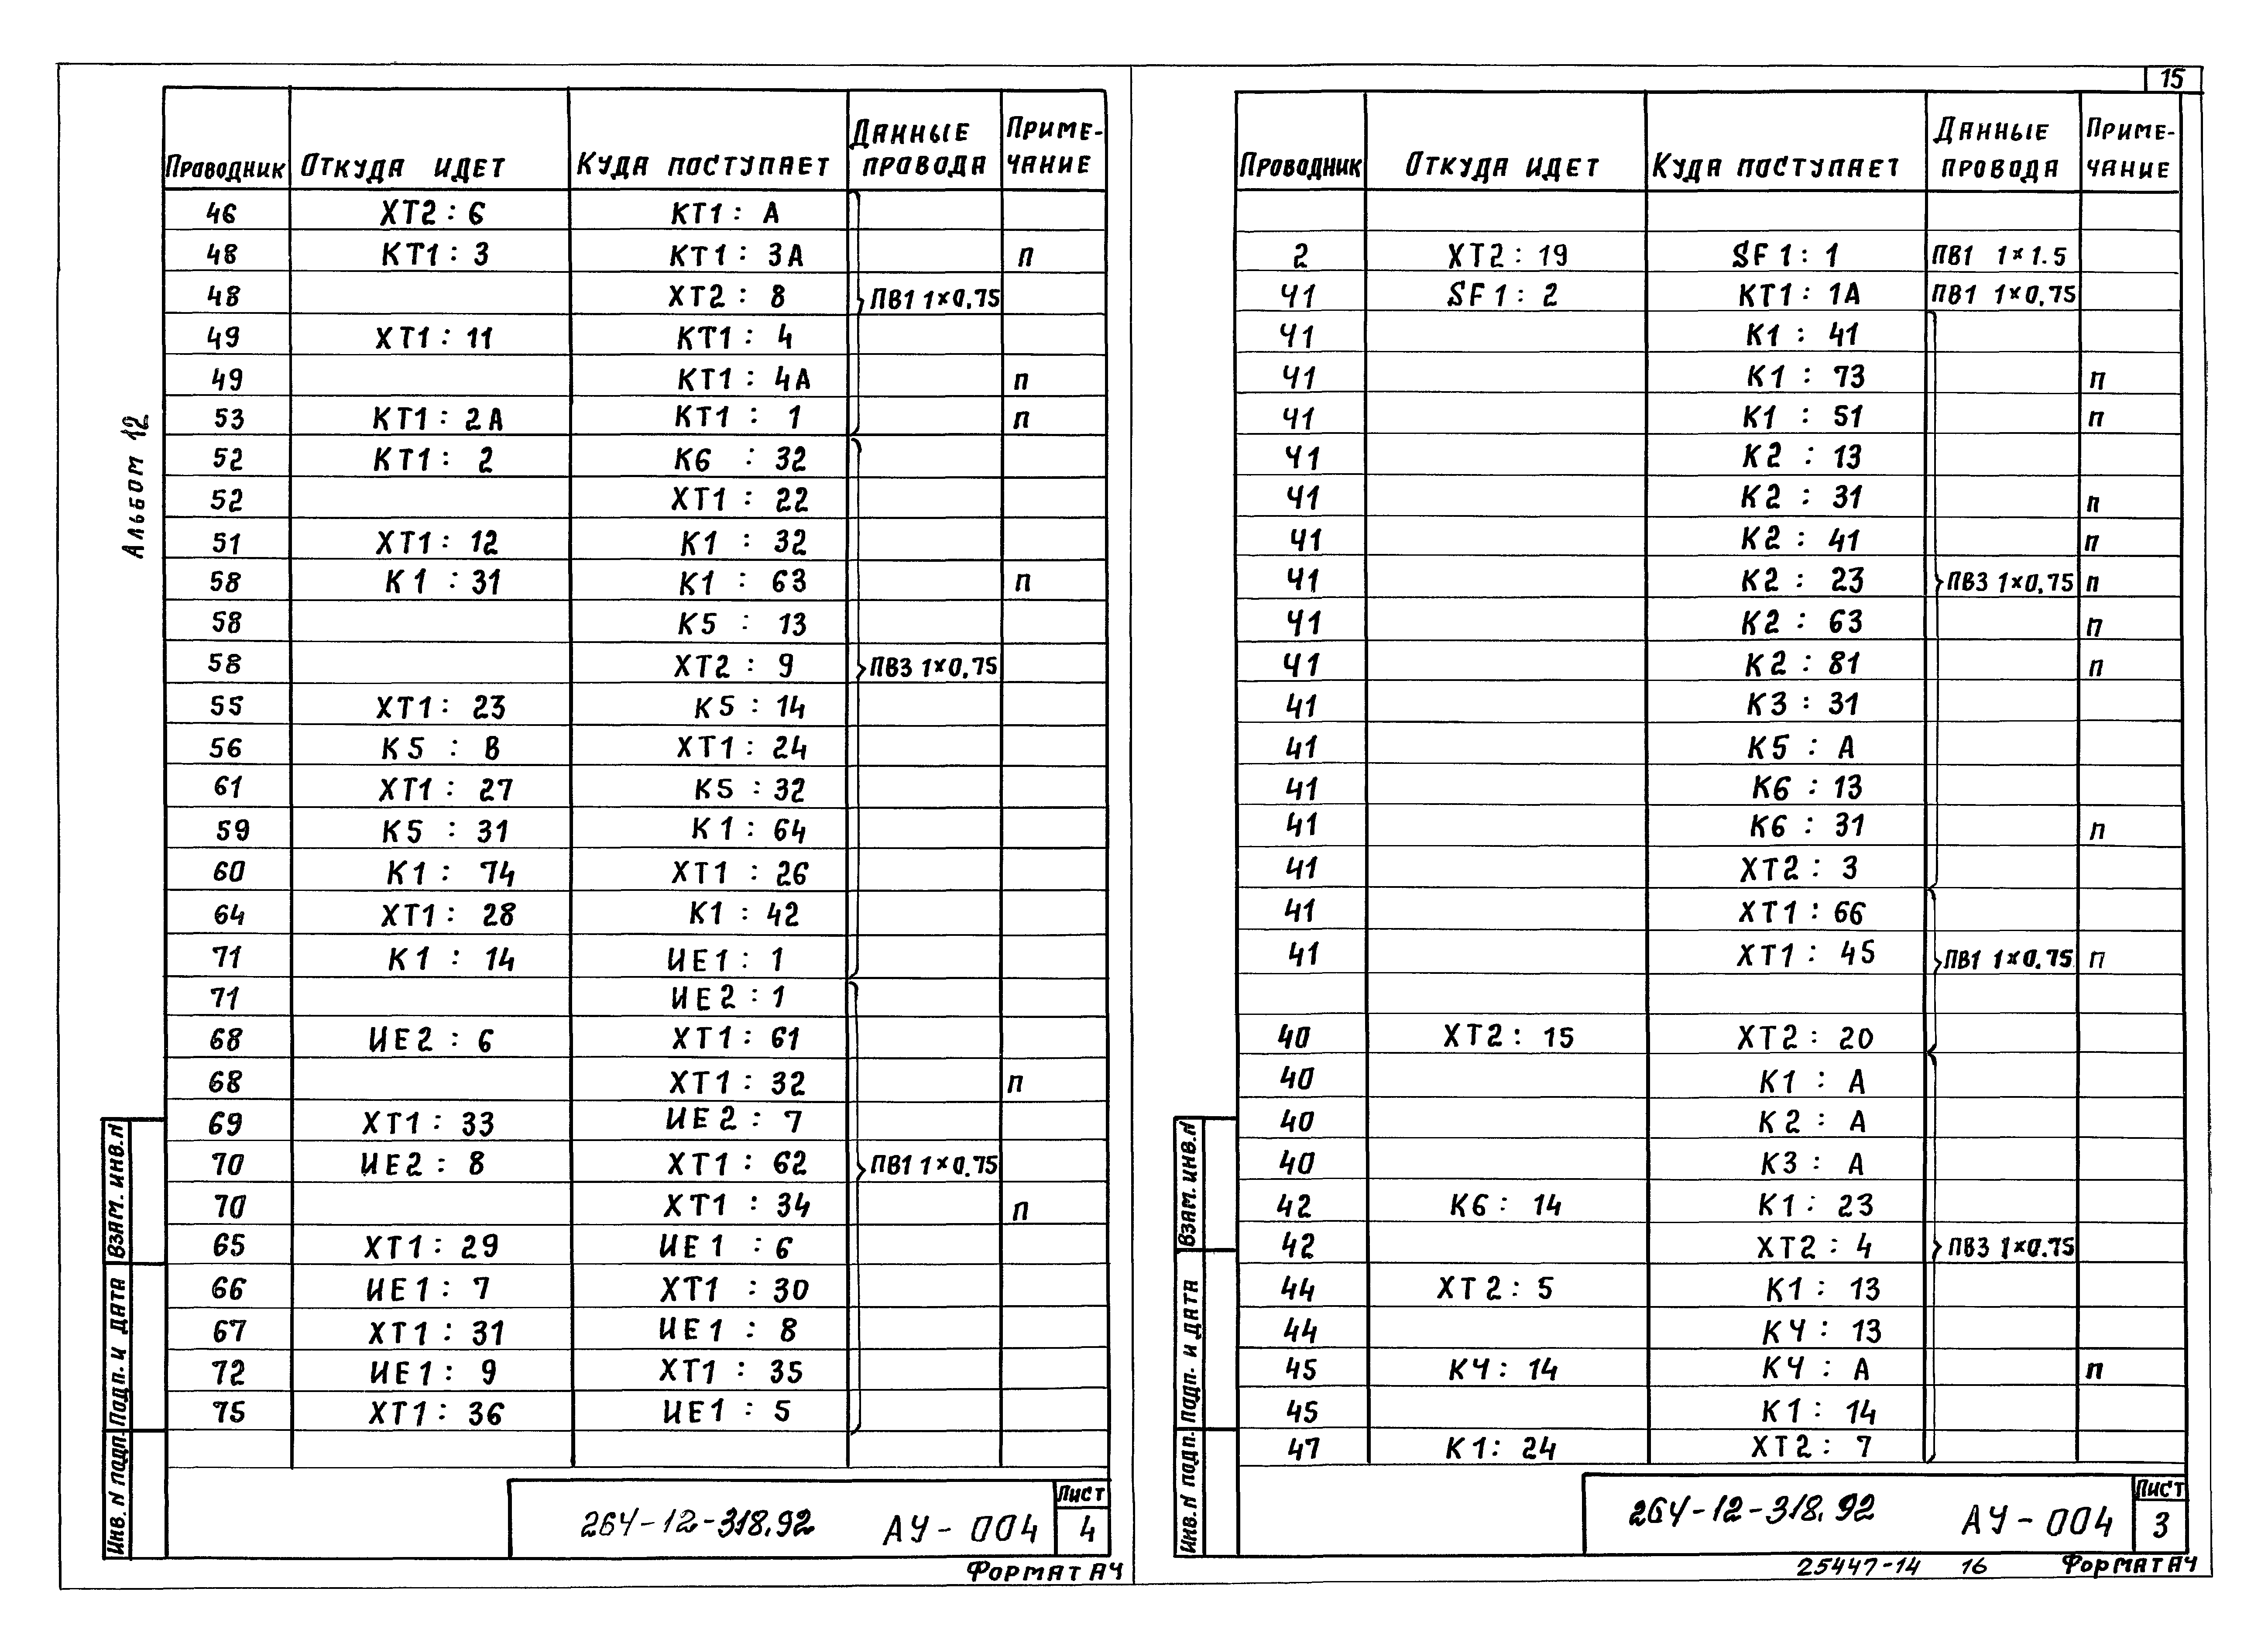 15
Альбом 12
Проводник Откуда идет Куда поступает Данные провода Приме-чание
46 XT2 : 6 KT1 : A
48 KT1 : 3 KT1 : 3A п
48 XT2 : 8 ПВ1 1×0,75
49 XT1 : 11 KT1 : 4
49 KT1 : 4A п
53 KT1 : 2A KT1 : 1 п
52 KT1 : 2 K6 : 32
52 XT1 : 22
51 XT1 : 12 K1 : 32
58 K1 : 31 K1 : 63 п
58 K5 : 13
58 XT2 : 9 ПВ3 1×0,75
55 XT1 : 23 K5 : 14
56 K5 : B XT1 : 24
61 XT1 : 27 K5 : 32
59 K5 : 31 K1 : 64
60 K1 : 74 XT1 : 26
64 XT1 : 28 K1 : 42
71 K1 : 14 ИЕ1 : 1
71 ИЕ2 : 1
68 ИЕ2 : 6 XT1 : 61
68 XT1 : 32 п
69 XT1 : 33 ИЕ2 : 7
70 ИЕ2 : 8 XT1 : 62 ПВ1 1×0,75
70 XT1 : 34 п
65 XT1 : 29 ИЕ1 : 6
66 ИЕ1 : 7 XT1 : 30
67 XT1 : 31 ИЕ1 : 8
72 ИЕ1 : 9 XT1 : 35
75 XT1 : 36 ИЕ1 : 5
Взам. инв. N
Подп. и дата
Инв. N подп.
264-12-318.92 АУ-004
Лист
4
Формат А4
Проводник Откуда идет Куда поступает Данные провода Приме-чание
2 XT2 : 19 SF1 : 1 ПВ1 1×1.5
41 SF1 : 2 KT1 : 1A ПВ1 1×0,75
41 K1 : 41
41 K1 : 73 п
41 K1 : 51 п
41 K2 : 13
41 K2 : 31 п
41 K2 : 41 п
41 K2 : 23 ПВ3 1×0,75 п
41 K2 : 63 п
41 K2 : 81 п
41 K3 : 31
41 K5 : A
41 K6 : 13
41 K6 : 31 п
41 XT2 : 3
41 XT1 : 66
41 XT1 : 45 ПВ1 1×0,75 п
40 XT2 : 15 XT2 : 20
40 K1 : A
40 K2 : A
40 K3 : A
42 K6 : 14 K1 : 23
42 XT2 : 4 ПВ3 1×0.75
44 XT2 : 5 K1 : 13
44 K4 : 13
45 K4 : 14 K4 : A п
45 K1 : 14
47 K1 : 24 XT2 : 7
Взам. инв. N
Подп. и дата
Инв. N подп.
264-12-318.92 АУ-004
Лист
3
25447-14 16 Формат А4